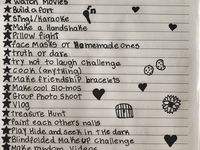 Watch Movies
Build a fort
Sing/karaoke
Make a Handshake
Pillow fight
Face Masks or Homemade ones
Truth or dare
try not to laugh challenge
cook (anything)
Make friendship bracelets
Make cool slo-mos
Group Photo Shoot
Vlog
Treasure Hunt
Paint each others nails
Play Hide and seek in the dark
Blindfolded Makeup challenge
Make random Videos